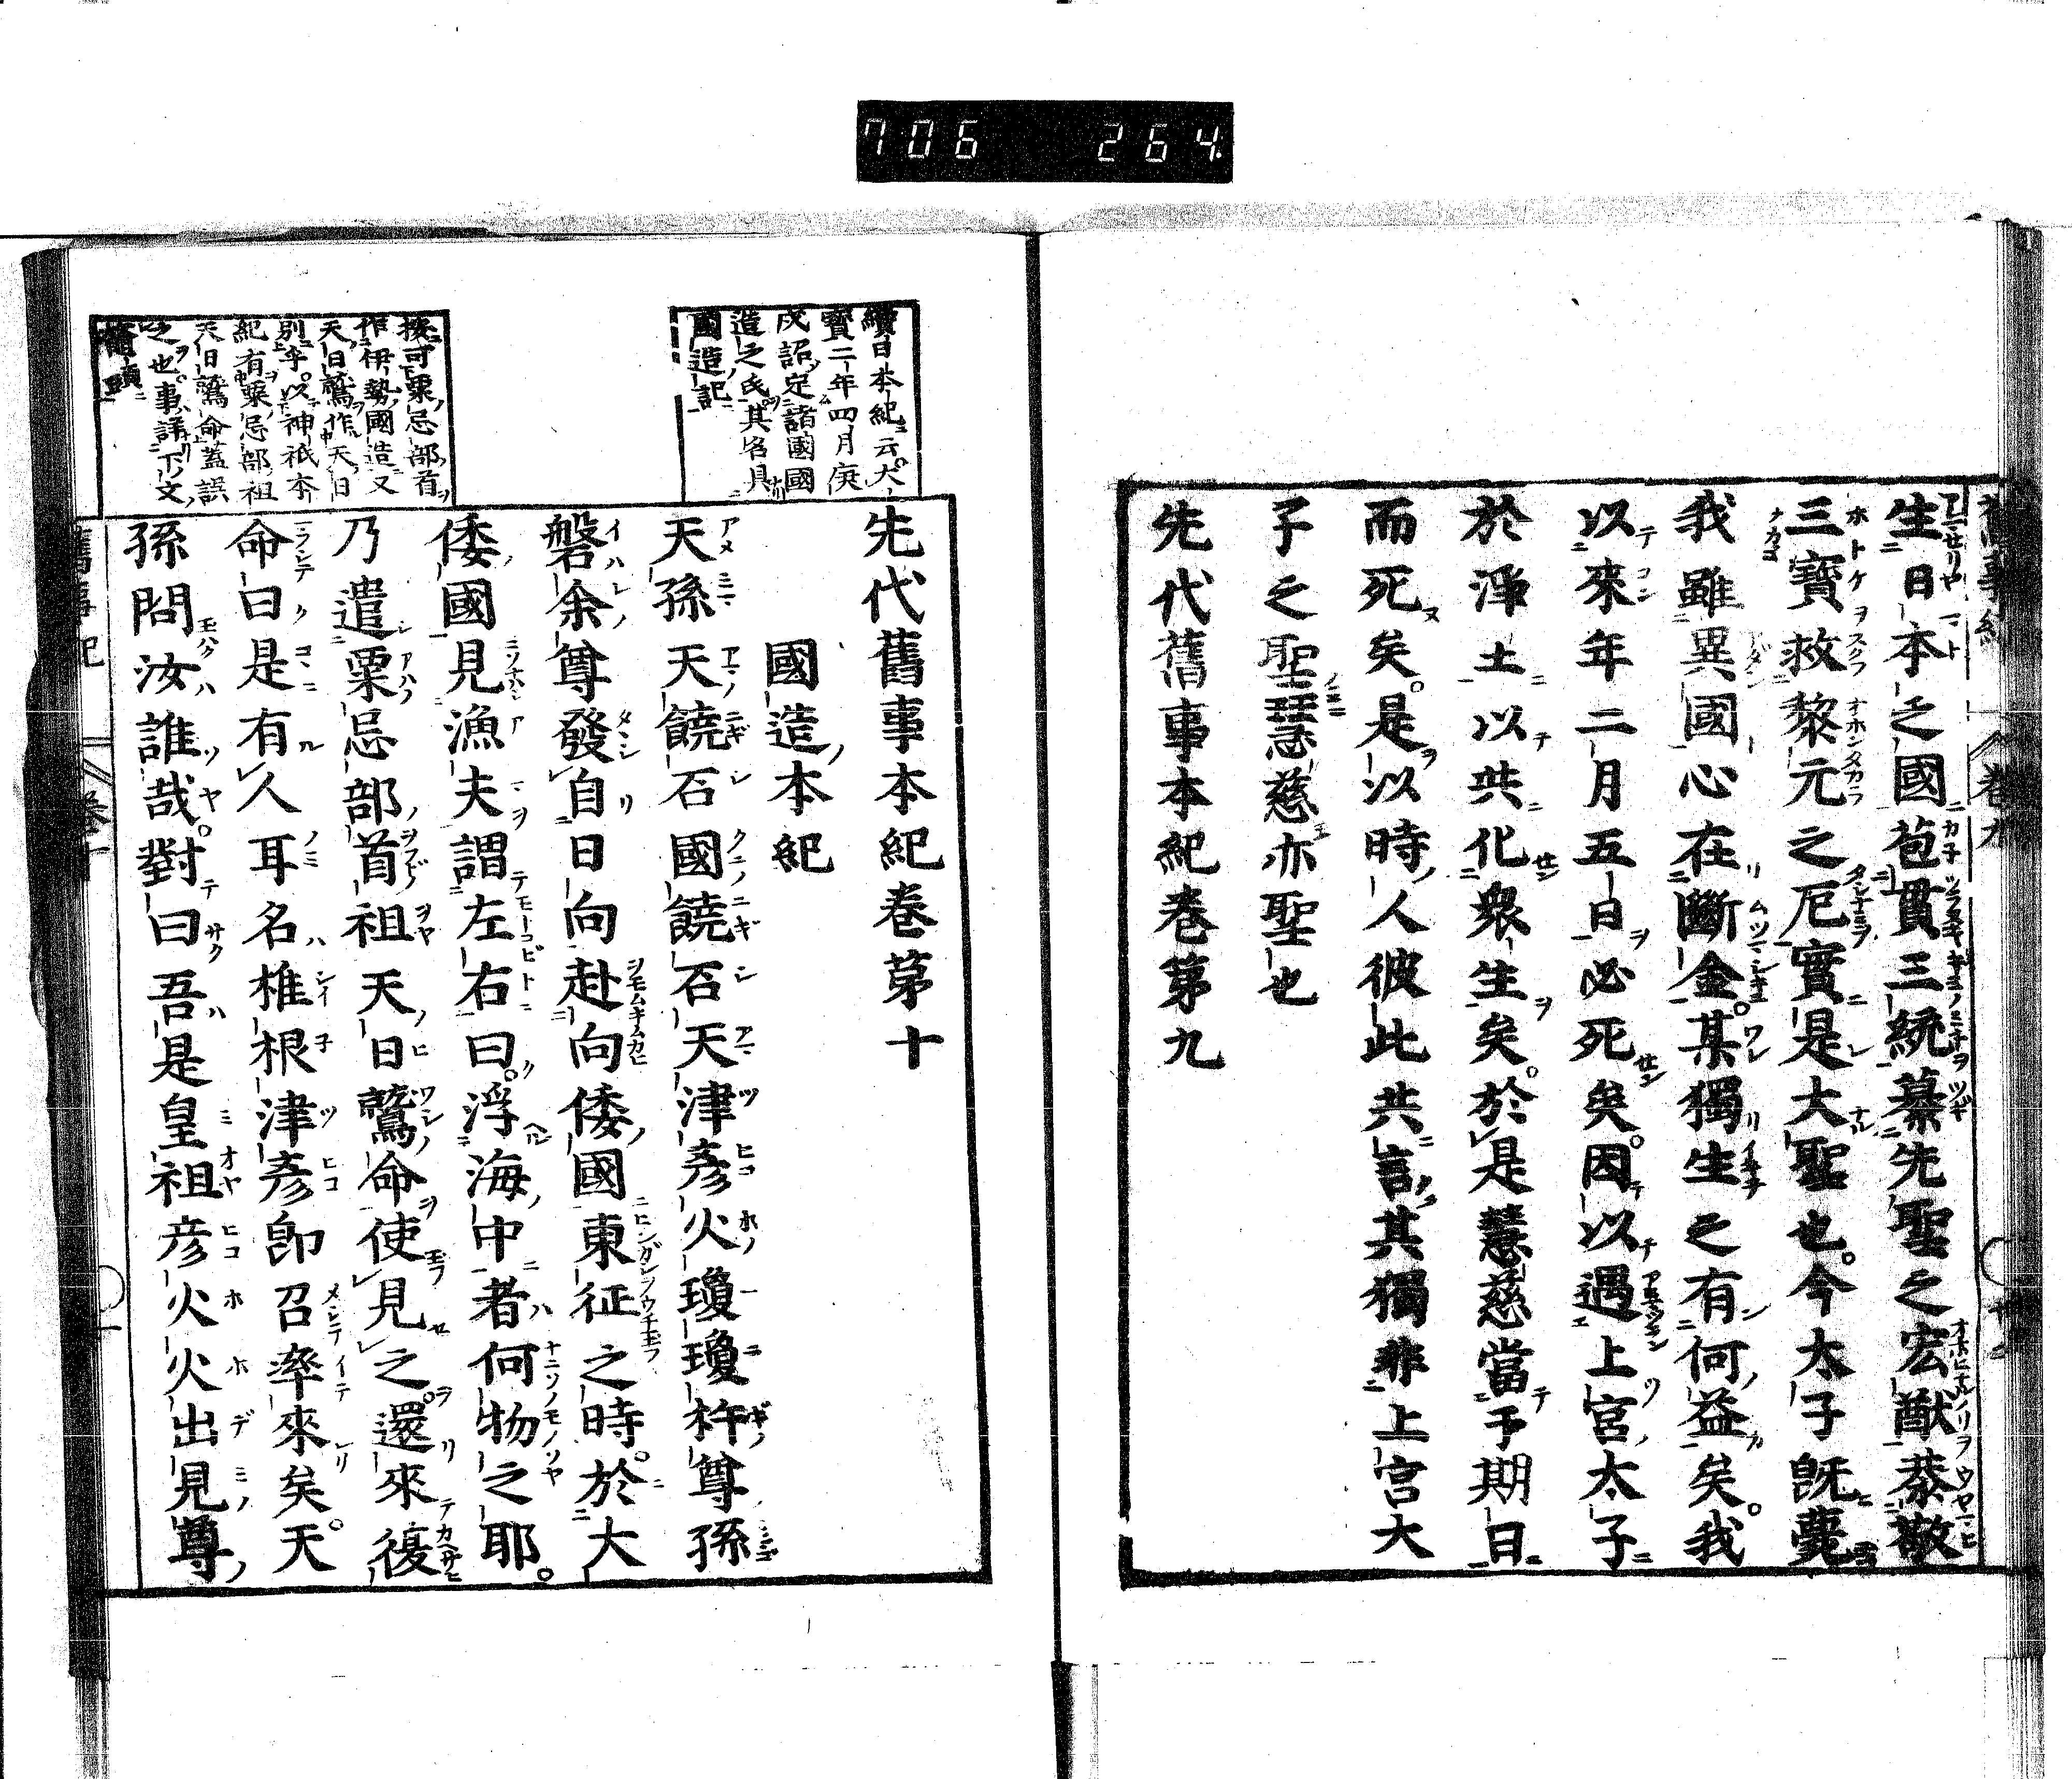 706 264
生日本之國苞貫三統纂先聖之宏猷恭敬
三寶救黎元之厄實是大聖也。今太子既薨
我雖異國心在斷金。某獨生之有何益矣。我
以來年二月五日必死矣。因以遇上宮太子
於淨土以共化衆生矣。於是慧慈當于期日
而死矣。是以時人彼此共言其獨非上宮大
子之聖慧慈亦聖也
先代舊事本紀卷第九
續日本紀云。大
寶二年四月庚
戌詔定諸國國
造之氏其名具
國造記
先代舊事本紀卷第十
國造本紀
天孫天饒石國饒石天津彥火瓊瓊杵尊孫
磐余尊發自日向赴向倭國東征之時。於大
倭國見漁夫謂左右曰。浮海中者何物之耶。
乃遣粟忌部首祖天日鷲命使見之。還來復
命曰是有人耳名椎根津彥卽召率來矣。天
孫問汝誰哉。對曰吾是皇祖彥火火出見尊
按可粟忌部首
作伊勢國造又
天日鷲作天日
別乎。以神祇本
紀有粟忌部祖
天日鷲命蓋誤
之也。事詳下文